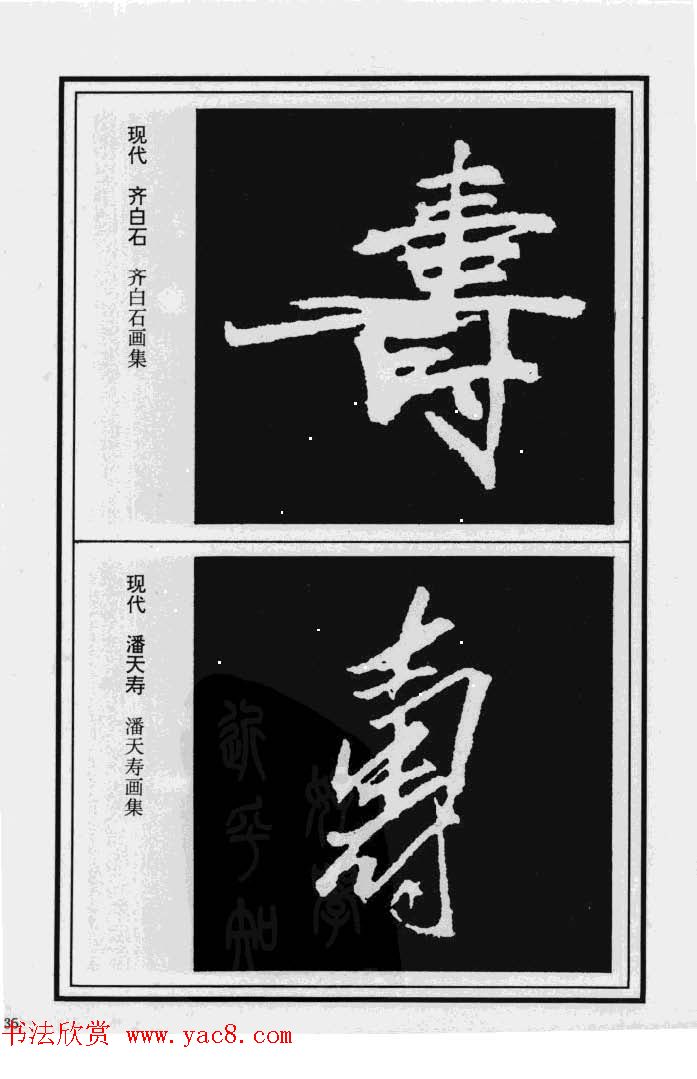 现代 齐白石 齐白石画集
壽
现代 潘天寿 潘天寿画集
壽
近乎知
好学
36
书法欣赏 www.yac8.com